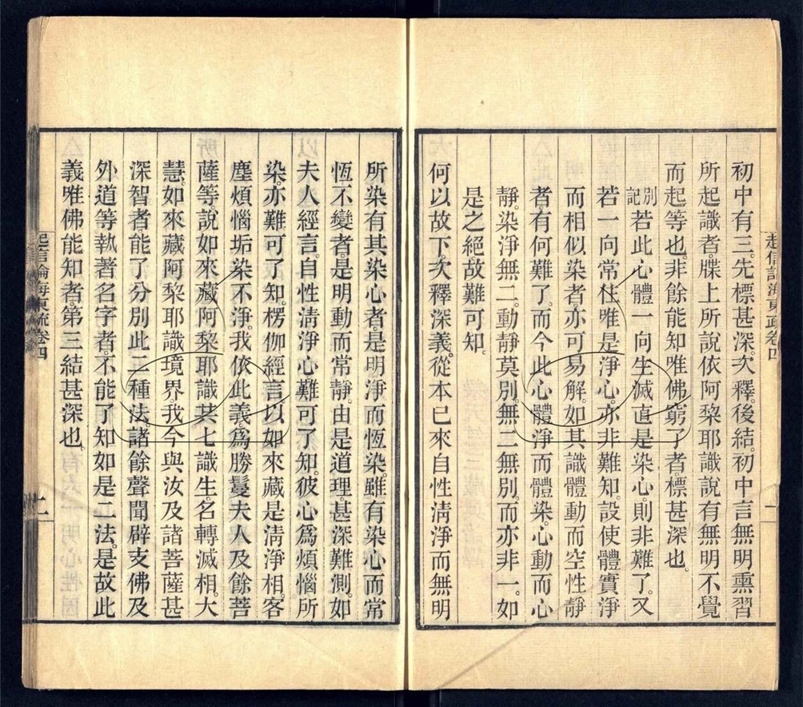 起信論海東疏卷四
一
初中有三。先標甚深。次釋。後結。初中言無明熏習
所起識者。牒上所說依阿黎耶識說有無明不覺
而起等也。非餘能知唯佛窮了者。標甚深也。
別記若此心體一向生滅直是染心。則非難了。又
若一向常住唯是淨心。亦非難知。設使體實淨
而相似染者亦可易解。如其識體動而空性靜
者有何難了。而今此心體淨而體染。心動而心
靜。染淨無二。動靜莫別。無二無別。而亦非一。如
是之絕故難可知。
何以故下。次釋深義。從本已來自性清淨而無明
所染有其染心者。是明淨而恆染。雖有染心而常
恆不變者。是明動而常靜。由是道理。甚深難測。如
夫人經言。自性清淨心難可了知。彼心為煩惱所
染。亦難可了知。楞伽經言。以如來藏是清淨相。客
塵煩惱垢染不淨。我依此義。為勝鬘夫人及餘菩
薩等說如來藏阿黎耶識共七識生。名轉滅相。大
慧。如來藏阿黎耶識境界我今與汝及諸菩薩甚
深智者。能了分別此二種法。諸餘聲聞辟支佛及
外道等執著名字者。不能了知如是二法。是故此
義唯佛能知者。第三結甚深也。
起信論海東疏卷四
二